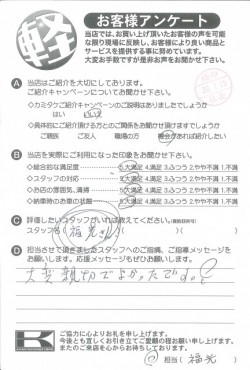 軽
お客様アンケート
当店では、お買い上げ頂いたお客様の声を可能
な限り現場に反映し、お客様により良い商品と
サービスを提供する事に努めています。
大変お手数ですが是非お声をお聞かせ下さい。
A 当店はご紹介を大切にしております。
ご紹介キャンペーンについてお聞かせ下さい。
◇カミタケご紹介キャンペーンのご説明はありましたでしょうか
はい
◇具体的にご紹介頂ける方とのご関係をお聞かせ頂けますでしょうか
ご親族 ご友人 職場の方 機会があれば紹介したい
B 当店を実際にご利用になった印象をお聞かせ下さい。
◇総合的な満足度 5.大満足 4.満足 3.ふつう 2.やや不満 1.不満
◇スタッフの対応 5.大満足 4.満足 3.ふつう 2.やや不満 1.不満
◇お店の雰囲気、清掃 5.大満足 4.満足 3.ふつう 2.やや不満 1.不満
◇納車時のお車の状態 5.大満足 4.満足 3.ふつう 2.やや不満 1.不満
C 評価したいスタッフがいれば教えてください。
スタッフ名( 福光さん )
D 担当させて頂きましたスタッフへのご指摘、ご指導メッセージを
お願いします。応援メッセージもお待ちしております。
大変親切でよかったです。
K
ご協力に心よりお礼を申し上げます。
今後とも宜しくお引き立てご愛顧の程お願い申し上げます。
またのご来店を心からお待ちしております。
担当( 福光 )